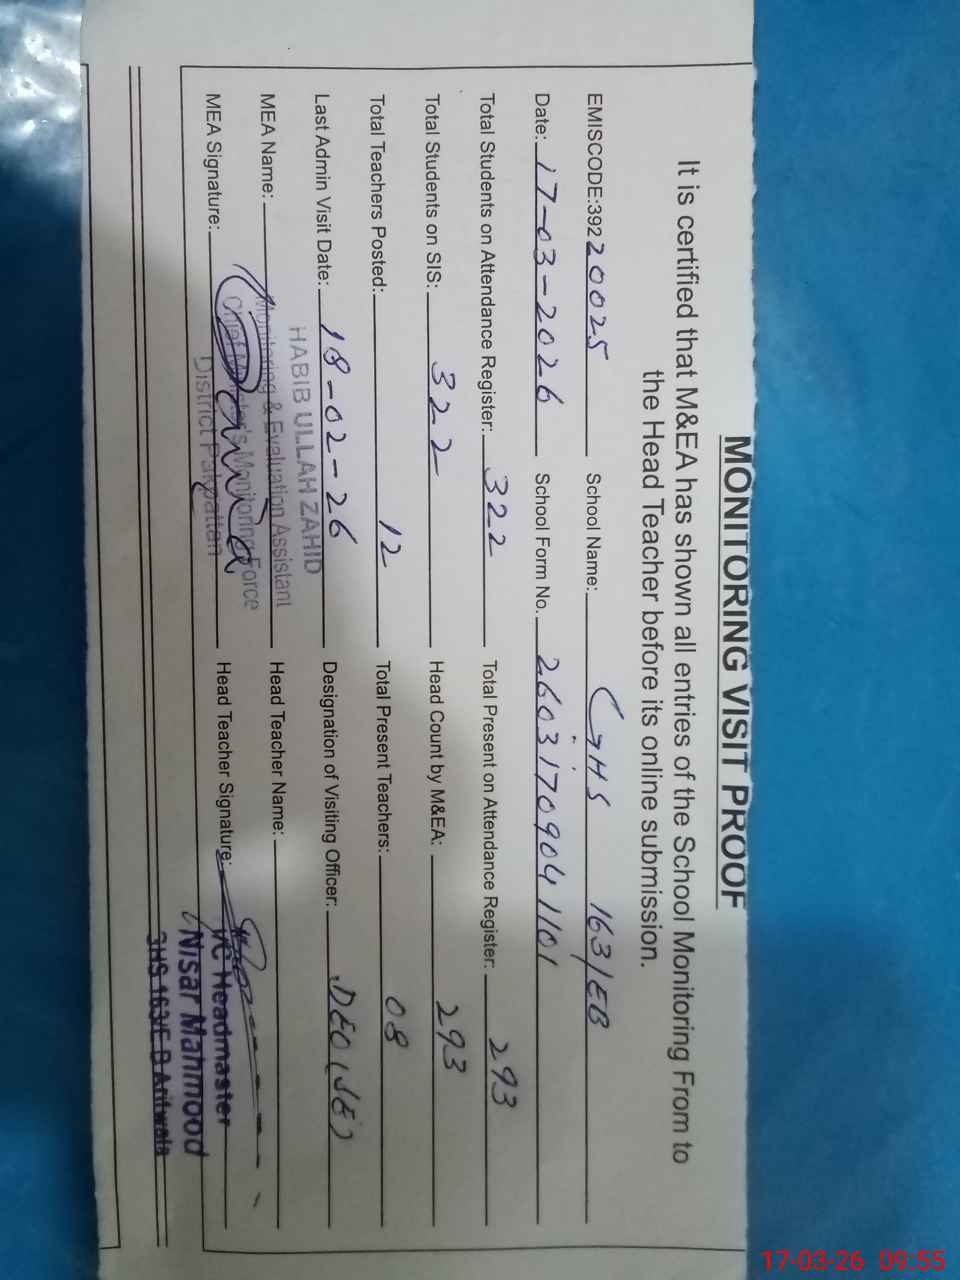 MONITORING VISIT PROOF
It is certified that M&EA has shown all entries of the School Monitoring From to
the Head Teacher before its online submission.
EMISCODE:39220025 School Name: GHS 163/EB
Date: 17-03-2026 School Form No. 2603170904 1101
Total Students on Attendance Register: 322 Total Present on Attendance Register: 293
Total Students on SIS: 322 Head Count by M&EA: 293
Total Teachers Posted: 12 Total Present Teachers: 08
Last Admin Visit Date: 18-02-26 Designation of Visiting Officer: DEO (SE)
HABIB ULLAH ZAHID
MEA Name: Monitoring & Evaluation Assistant Head Teacher Name:
Chief Minister's Monitoring Force
MEA Signature: District Pakpattan Head Teacher Signature:
I/C Headmaster
(Nisar Mahmood
GHS 163/E.B Arifwala
17-03-26 09:55